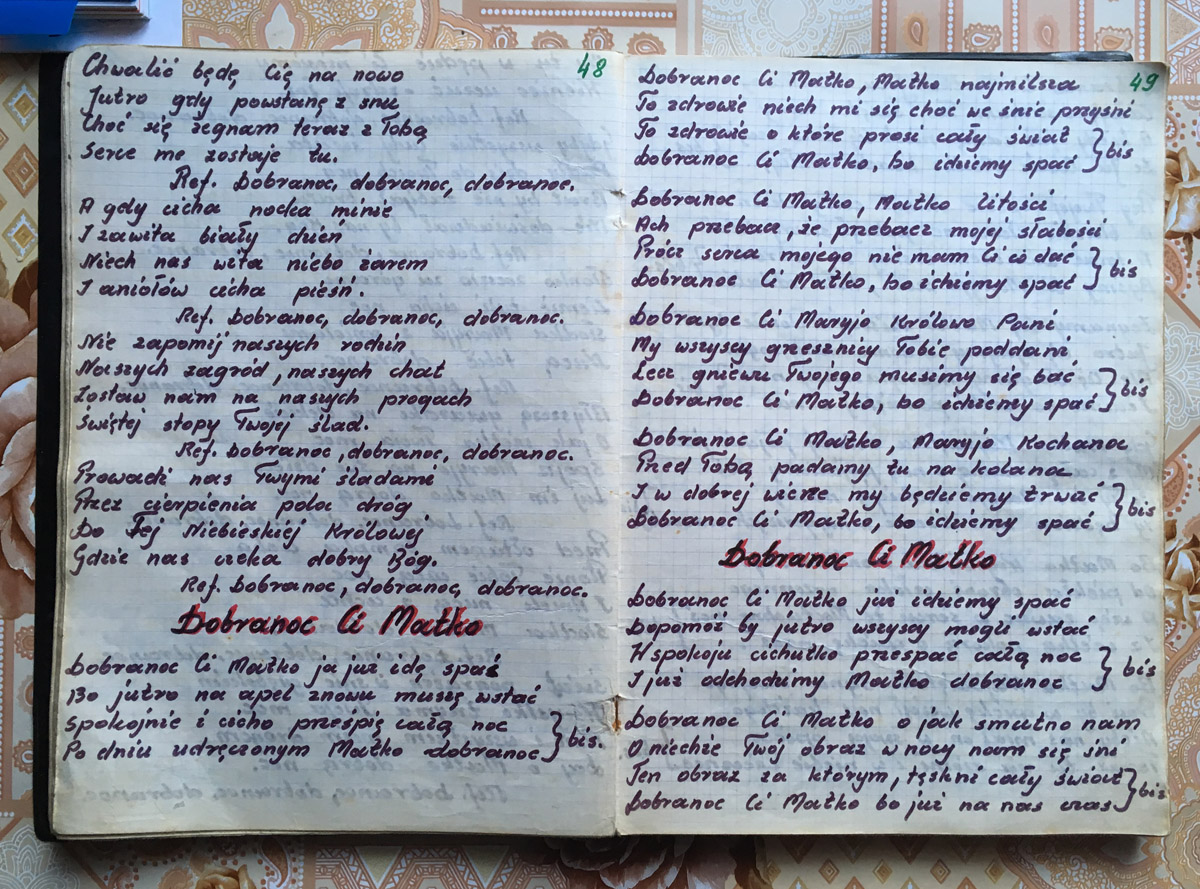 48
Chwalić będę Cię na nowo
Jutro gdy powstanę z snu
Choć się żegnam teraz z Tobą
Serce me zostaje tu.
Ref. Dobranoc, dobranoc, dobranoc.
A gdy cicha nocka minie
I zawita biały dzień
Niech nas wita niebo żarem
I aniołów cicha pieśń.
Ref. Dobranoc, dobranoc, dobranoc.
Nie zapomij naszych rodzin
Naszych zagród, naszych chat
Zostaw nam na naszych progach
Świętej stopy Twojej ślad.
Ref. Dobranoc, dobranoc, dobranoc.
Prowadź nas Twymi śladami
Przez cierpienia polac dróg
Do Tej Niebieskiej Królowej
Gdzie nas czeka dobry Bóg.
Ref. Dobranoc, dobranoc, dobranoc.
Dobranoc Ci Matko
Dobranoc Ci Matko ja już idę spać
Bo jutro na apel znowu muszę wstać
Spokojnie i cicho prześpię całą noc
Po dniu udręczonym Matko dobranoc } bis.
49
Dobranoc Ci Matko, Matko najmilsza
To zdrowie niech mi się choć we śnie przyśni
To zdrowie o które prosi cały świat
Dobranoc Ci Matko, bo idziemy spać } bis
Dobranoc Ci Matko, Matko litości
Ach przebacz, że przebacz mojej słabości
Prócz serca mojego nie mam Ci co dać
Dobranoc Ci Matko, bo idziemy spać } bis
Dobranoc Ci Maryjo Królowo Pani
My wszyscy grzesznicy Tobie poddani,
Lecz gniewu Twojego musimy się bać
Dobranoc Ci Matko, bo idziemy spać } bis
Dobranoc Ci Matko, Maryjo Kochana
Przed Tobą padamy tu na kolana
I w dobrej wierze my będziemy trwać
Dobranoc Ci Matko, bo idziemy spać } bis
Dobranoc Ci Matko
Dobranoc Ci Matko już idziemy spać
Dopomóż by jutro wszyscy mogli wstać
W spokoju cichutko przespać całą noc
I już odchodzimy Matko dobranoc } bis
Dobranoc Ci Matko o jak smutno nam
O niechże Twój obraz w nocy nam się śni
Ten obraz za którym, tęskni cały świat
Dobranoc Ci Matko bo już na nas czas } bis